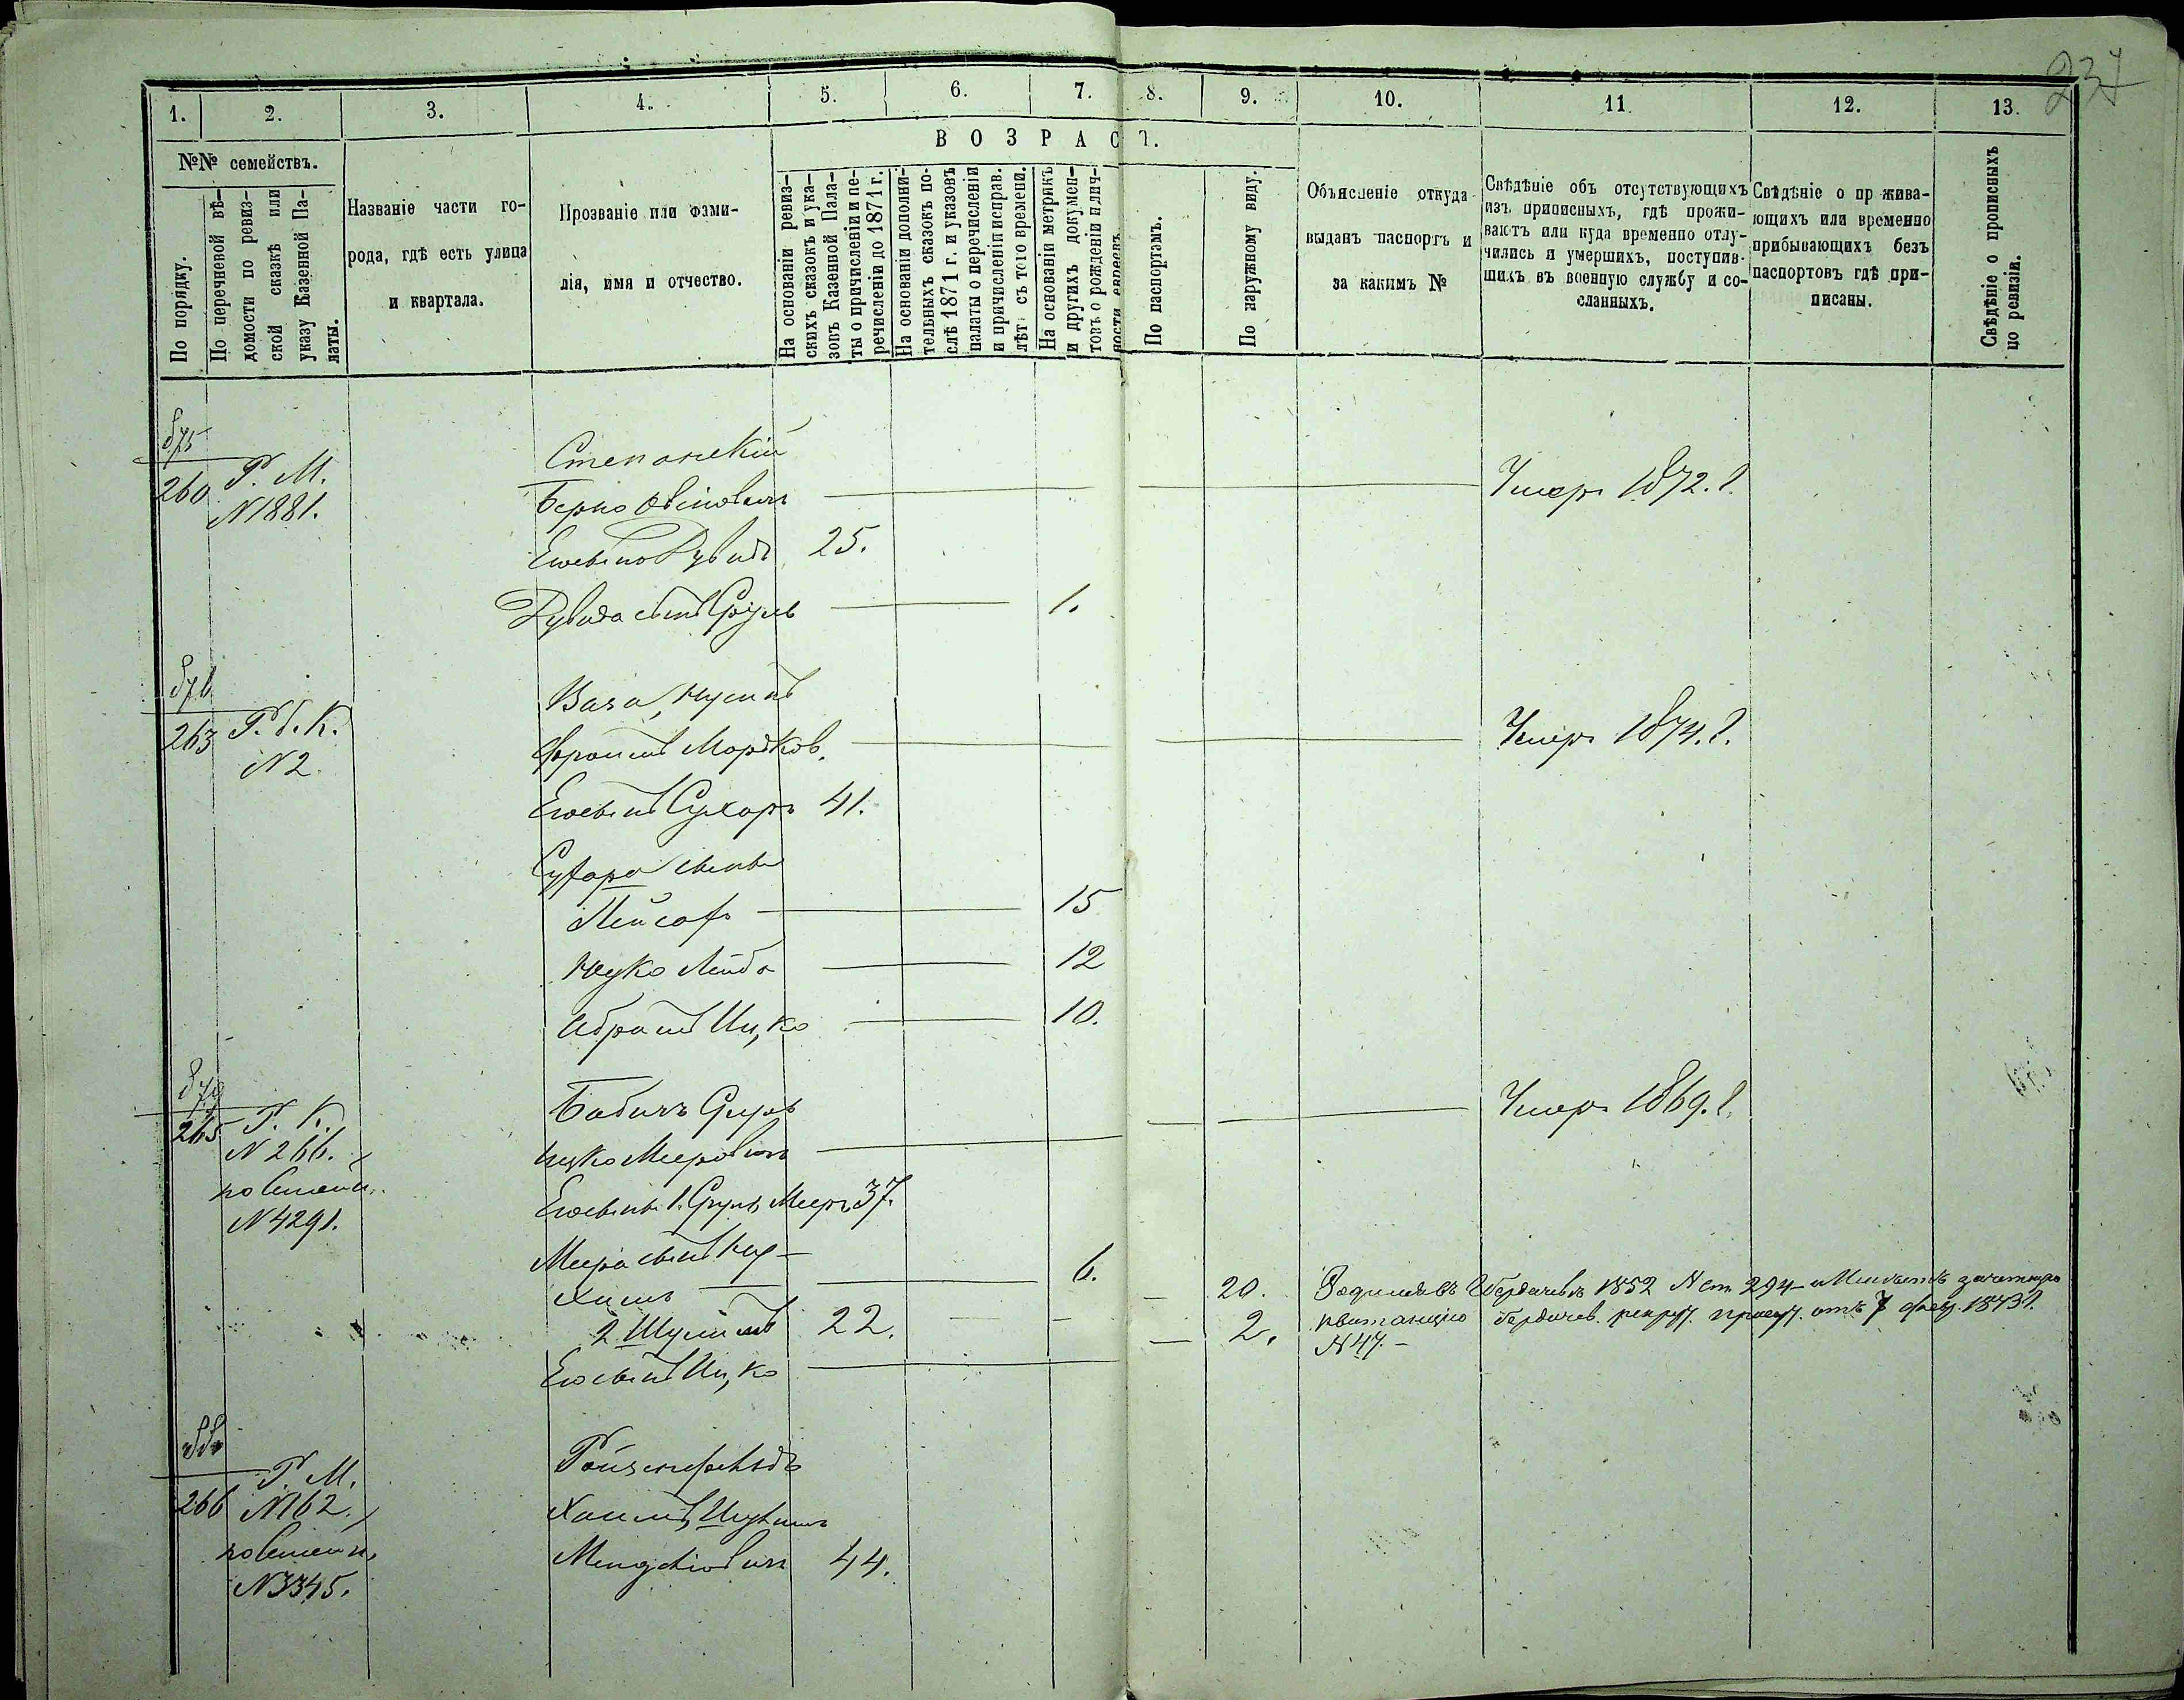 237
1. 2. 3. 4. 5. 6. 7. 8. 9. 10. 11. 12. 13.
№№ семействъ.
По порядку.
По перечневой вѣ-
домости по ревиз-
ской сказкѣ или
указу Казенной Па-
латы.
Названіе части го-
рода, гдѣ есть улица
и квартала.
Прозваніе или фами-
лія, имя и отчество.
ВОЗРАСТ.
На основаніи ревиз-
скихъ сказокъ и ука-
зовъ Казенной Пала-
ты о причисленіи и пе-
речисленіи до 1871 г.
На основаніи дополни-
тельныхъ сказокъ по-
слѣ 1871 г. и указовъ
палаты о перечисленіи
и причисленіи исправ.
лѣт съ того времени.
На основаніи метрикъ
и другихъ докумен-
товъ о рожденіи и лич-
ности евреевъ
По паспортамъ.
По наружному виду.
Объясненіе откуда
выданъ паспортъ и
за какимъ №
Свѣдѣніе объ отсутствующихъ
изъ приписныхъ, гдѣ прожи-
ваютъ или куда временно отлу-
чились и умершихъ, поступив-
шихъ въ военную службу и со-
сланныхъ.
Свѣдѣніе о пр жива-
ющихъ или временно
прибывающихъ безъ
паспортовъ гдѣ при-
писаны.
Свѣдѣніе о прописныхъ
по ревизіи.
875
260 Р. М.
N 1881.
Степанскій
Берко Овсіовичъ Умеръ 1872. г.
Его сынъ Дувидъ 25.
Дувида сынъ Сруль 1.
263 Р. б. К.
N 2.
Ваза, Нусимъ
Фроимъ Мордков. Умеръ 1874. г.
Его сынъ Сухаръ 41.
Сухара сыны
Пейсахъ 15
Ицко Лейба 12
Абрамъ Ицко 10.
265 Р. К.
N 266.
N 4291.
Бабичъ Сруль Умеръ 1869. г.
Ицко Мееровичъ
Его сыны 1. Сруль Мееръ 37.
Меера сынъ 6.
2 22. 20.
2.
Родился въ Бердичевѣ 1852 N ст 294
квитанцію бердичев. рекрут. присут. отъ 7 февр. 1873 г.
N 47.
Его сынъ Ицко
266 Р. М.
N 162.
N 3345.
Ройзенфельдъ
Хаимъ,
44.